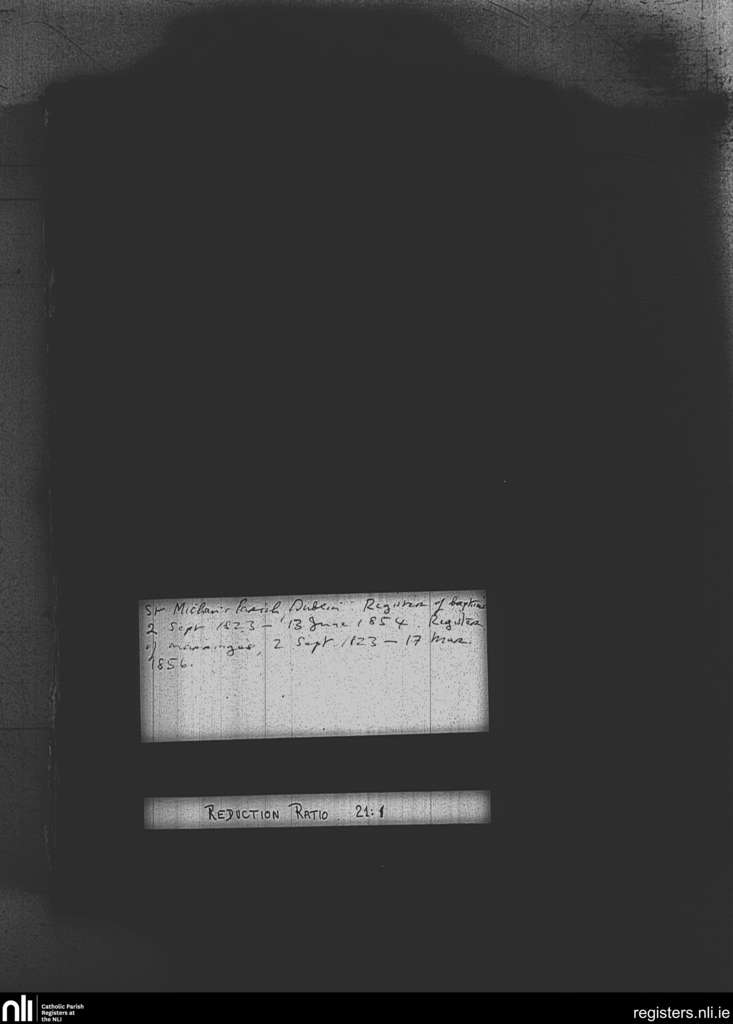 St Michan's Parish, Dublin: Register of baptisms
2 Sept 1823 – 13 June 1854. Register
of marriages, 2 Sept. 1823 – 17 Mar.
1856.
REDUCTION RATIO 21:1
nli
Catholic Parish
Registers at
the NLI
registers.nli.ie